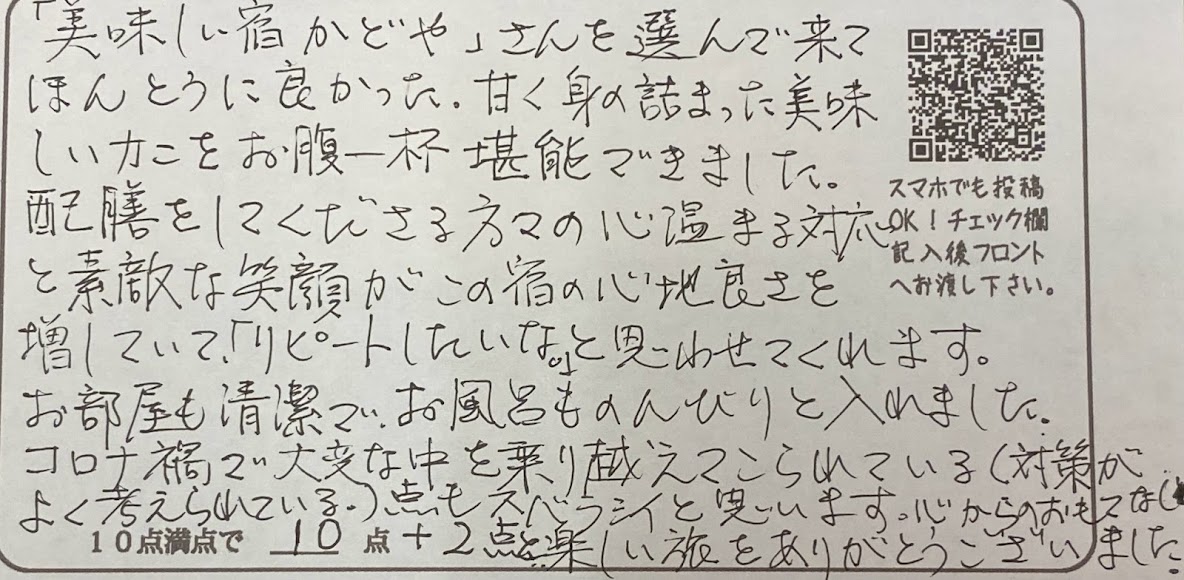 「美味しい宿かどや」さんを選んで来て
ほんとうに良かった。甘く身の詰まった美味
しいカニをお腹一杯堪能できました。
配膳をしてくださる方々の心温まる対応
と素敵な笑顔がこの宿の心地良さを
増していて、「リピートしたいな。」と思わせてくれます。
お部屋も清潔で、お風呂ものんびりと入れました。
コロナ禍で大変な中を乗り越えてこられている(対策が
よく考えられている。)点もスバラシイと思います。心からのおもてなし
10点満点で 10 点 +2点と楽しい旅をありがとうございました。
スマホでも投稿
OK!チェック欄
記入後フロント
へお渡し下さい。